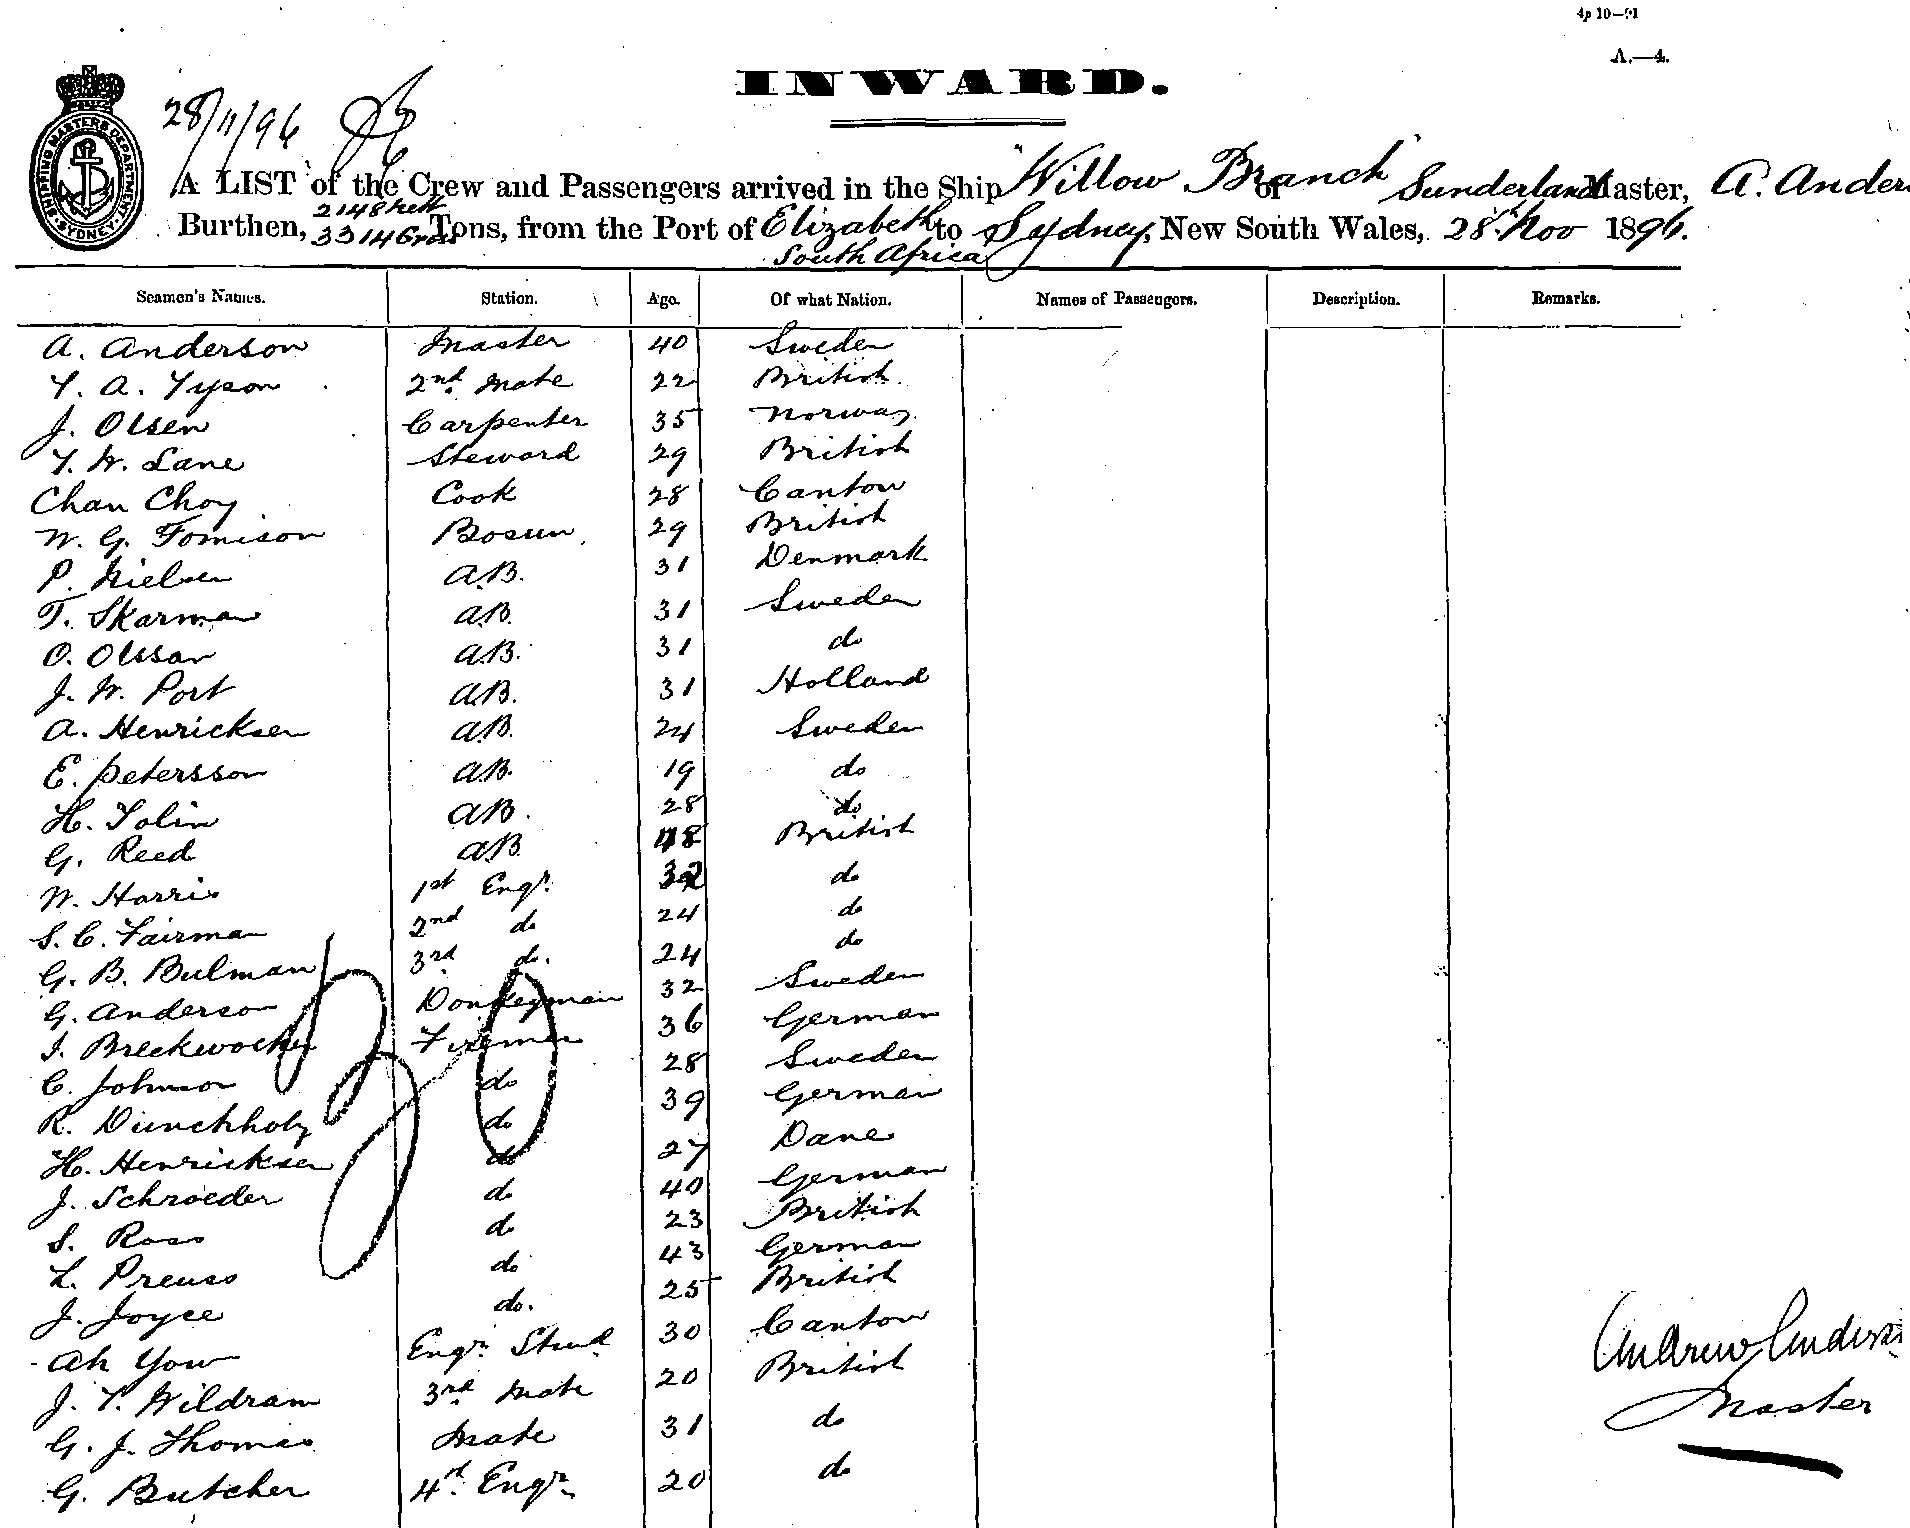 4p 10—91
A.—4.
INWARD.
28/11/96
SHIPPING MASTERS DEPARTMENT SYDNEY
A LIST of the Crew and Passengers arrived in the Ship "Willow Branch" of Sunderland Master, A. Ander
Burthen, 2148 Nett 3314 Gross Tons, from the Port of Elizabeth South Africa to Sydney, New South Wales, 28th Nov 1896.
Seamen's Names. Station. Age. Of what Nation. Names of Passengers. Description. Remarks.
A. Anderson Master 40 Sweden
A. Tyson 2nd Mate 22 British
J. Olsen Carpenter 35 Norway
W. Lane Steward 29 British
Chan Choy Cook 28 Canton
W. G. Tomison Bosun 29 British
P. Nielsen A.B. 31 Denmark
T. Skarman A.B. 31 Sweden
O. Olssan A.B. 31 do
J. W. Port A.B. 31 Holland
A. Henricksen A.B. 24 Sweden
E. Petersson A.B. 19 do
H. A.B. 28 do
G. Reed A.B. 48 British
W. Harris 1st Engr. 32 do
S. C. Fairman 2nd do 24 do
G. B. Bulman 3rd do. 24 do
G. Anderson Donkeyman 32 Sweden
Fireman 36 German
C. Johnson do 28 Sweden
R. do 39 German
H. Henricksen do 27 Dane
J. Schroeder do 40 German
S. Ross do 23 British
L. Preuss do 43 German
J. Joyce do. 25 British
Ah Yow Engr. Stwd 30 Canton
J. Wildram 3rd Mate 20 British
G. J. Thomas Mate 31 do
G. Butcher 4th Engr. 20 do
Andrew Anders
Master